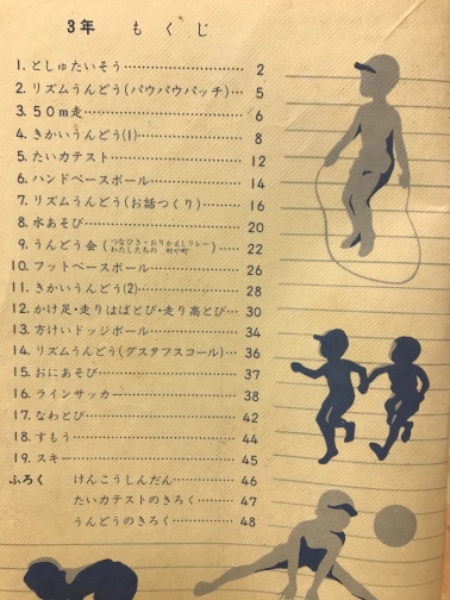 3年 もくじ
1. としゅたいそう………………………… 2
2. リズムうんどう(パウパウパッチ)… 5
3. 50m走………………………………… 6
4. きかいうんどう(1)…………………… 8
5. たい力テスト………………………… 12
6. ハンドベースボール………………… 14
7. リズムうんどう(お話つくり)……… 16
8. 水あそび……………………………… 20
9. うんどう会(つなひき・おりかえしリレー わたしたちの 村や町)…… 22
10. フットベースボール………………… 26
11. きかいうんどう(2)………………… 28
12. かけ足・走りはばとび・走り高とび… 30
13. 方けいドッジボール………………… 34
14. リズムうんどう(グスタフスコール)… 36
15. おにあそび…………………………… 37
16. ラインサッカー……………………… 38
17. なわとび……………………………… 42
18. すもう………………………………… 44
19. スキー………………………………… 45
ふろく けんこうしんだん…………… 46
たい力テストのきろく……… 47
うんどうのきろく…………… 48